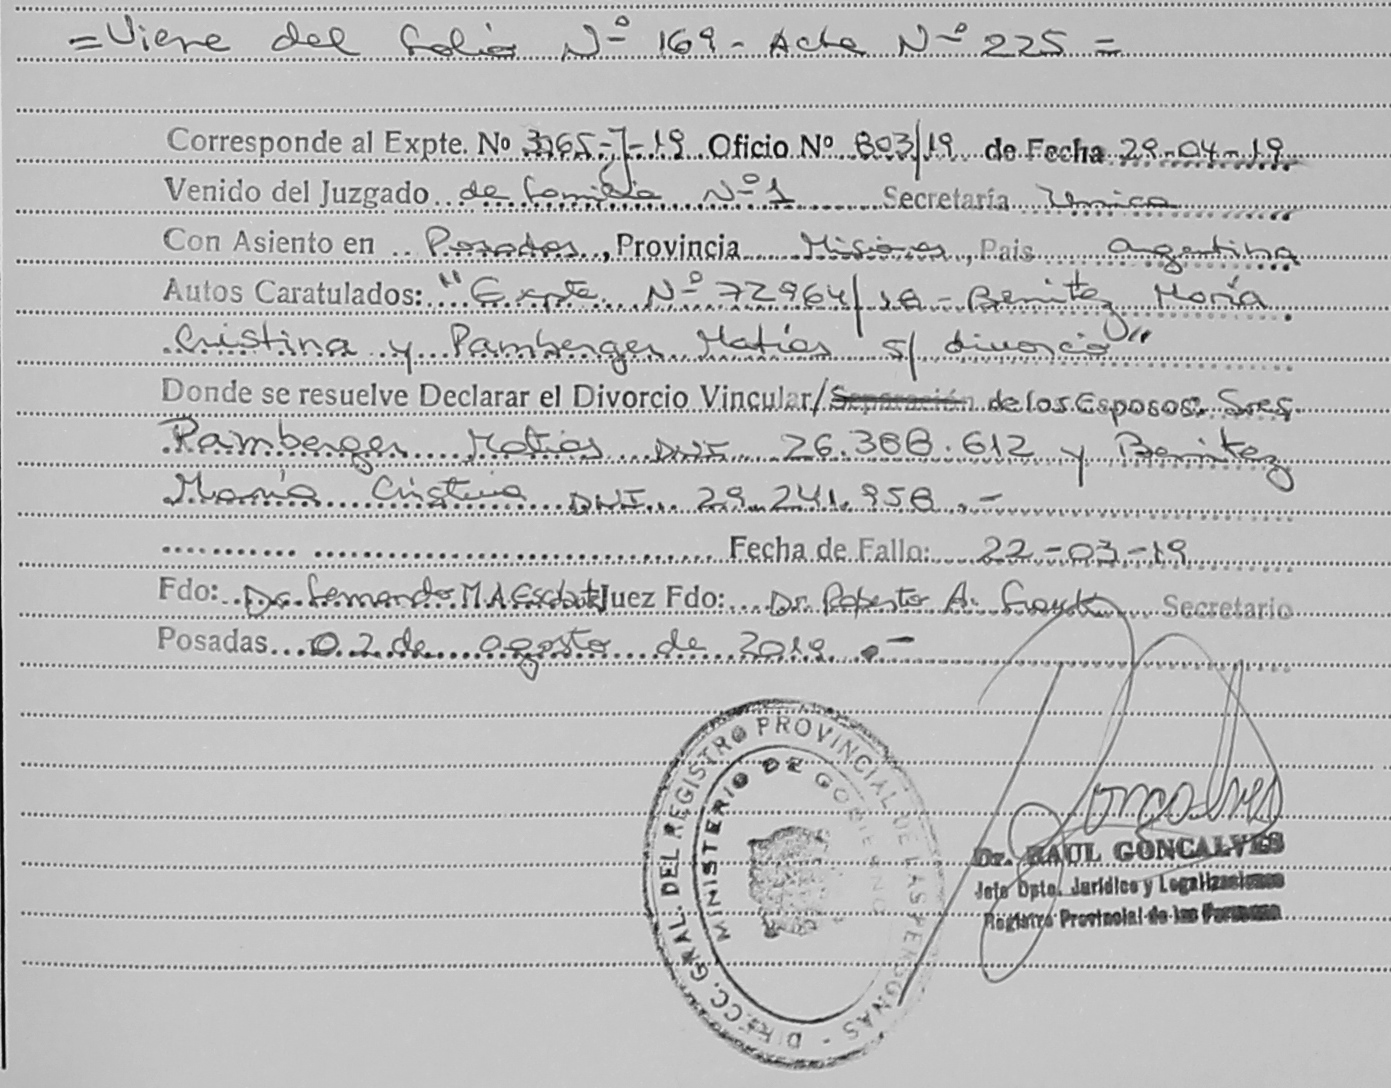 =Viene del folio Nº 169 - Acta Nº 225 =
Corresponde al Expte. Nº 3765-J-19 Oficio Nº 803/19 de Fecha 29-04-19
Venido del Juzgado de familia Nº 1 Secretaría Unica
Con Asiento en Posadas, Provincia Misiones, Pais argentina
Autos Caratulados: "Expte Nº 72964/18 - Benitez María
Cristina y Pamberger Matías s/ divorcio"
Donde se resuelve Declarar el Divorcio Vincular/Separación de los Esposos: Sres
Pamberger Matías DNI 26.388.612 y Benitez
María Cristina DNI. 29.241.958.-
Fecha de Fallo: 22-03-19
Fdo: Dr. Fernando M.A. Juez Fdo: Dr. Roberto A. Secretario
Posadas 02 de agosto de 2019.-
DIRECC. GRAL. DEL REGISTRO PROVINCIAL DE LAS PERSONAS -
MINISTERIO DE GOBIERNO
Goncalves
Dr. RAUL GONCALVES
Jefe Dpto. Jurídico y Legalizaciones
Registro Provincial de las Personas